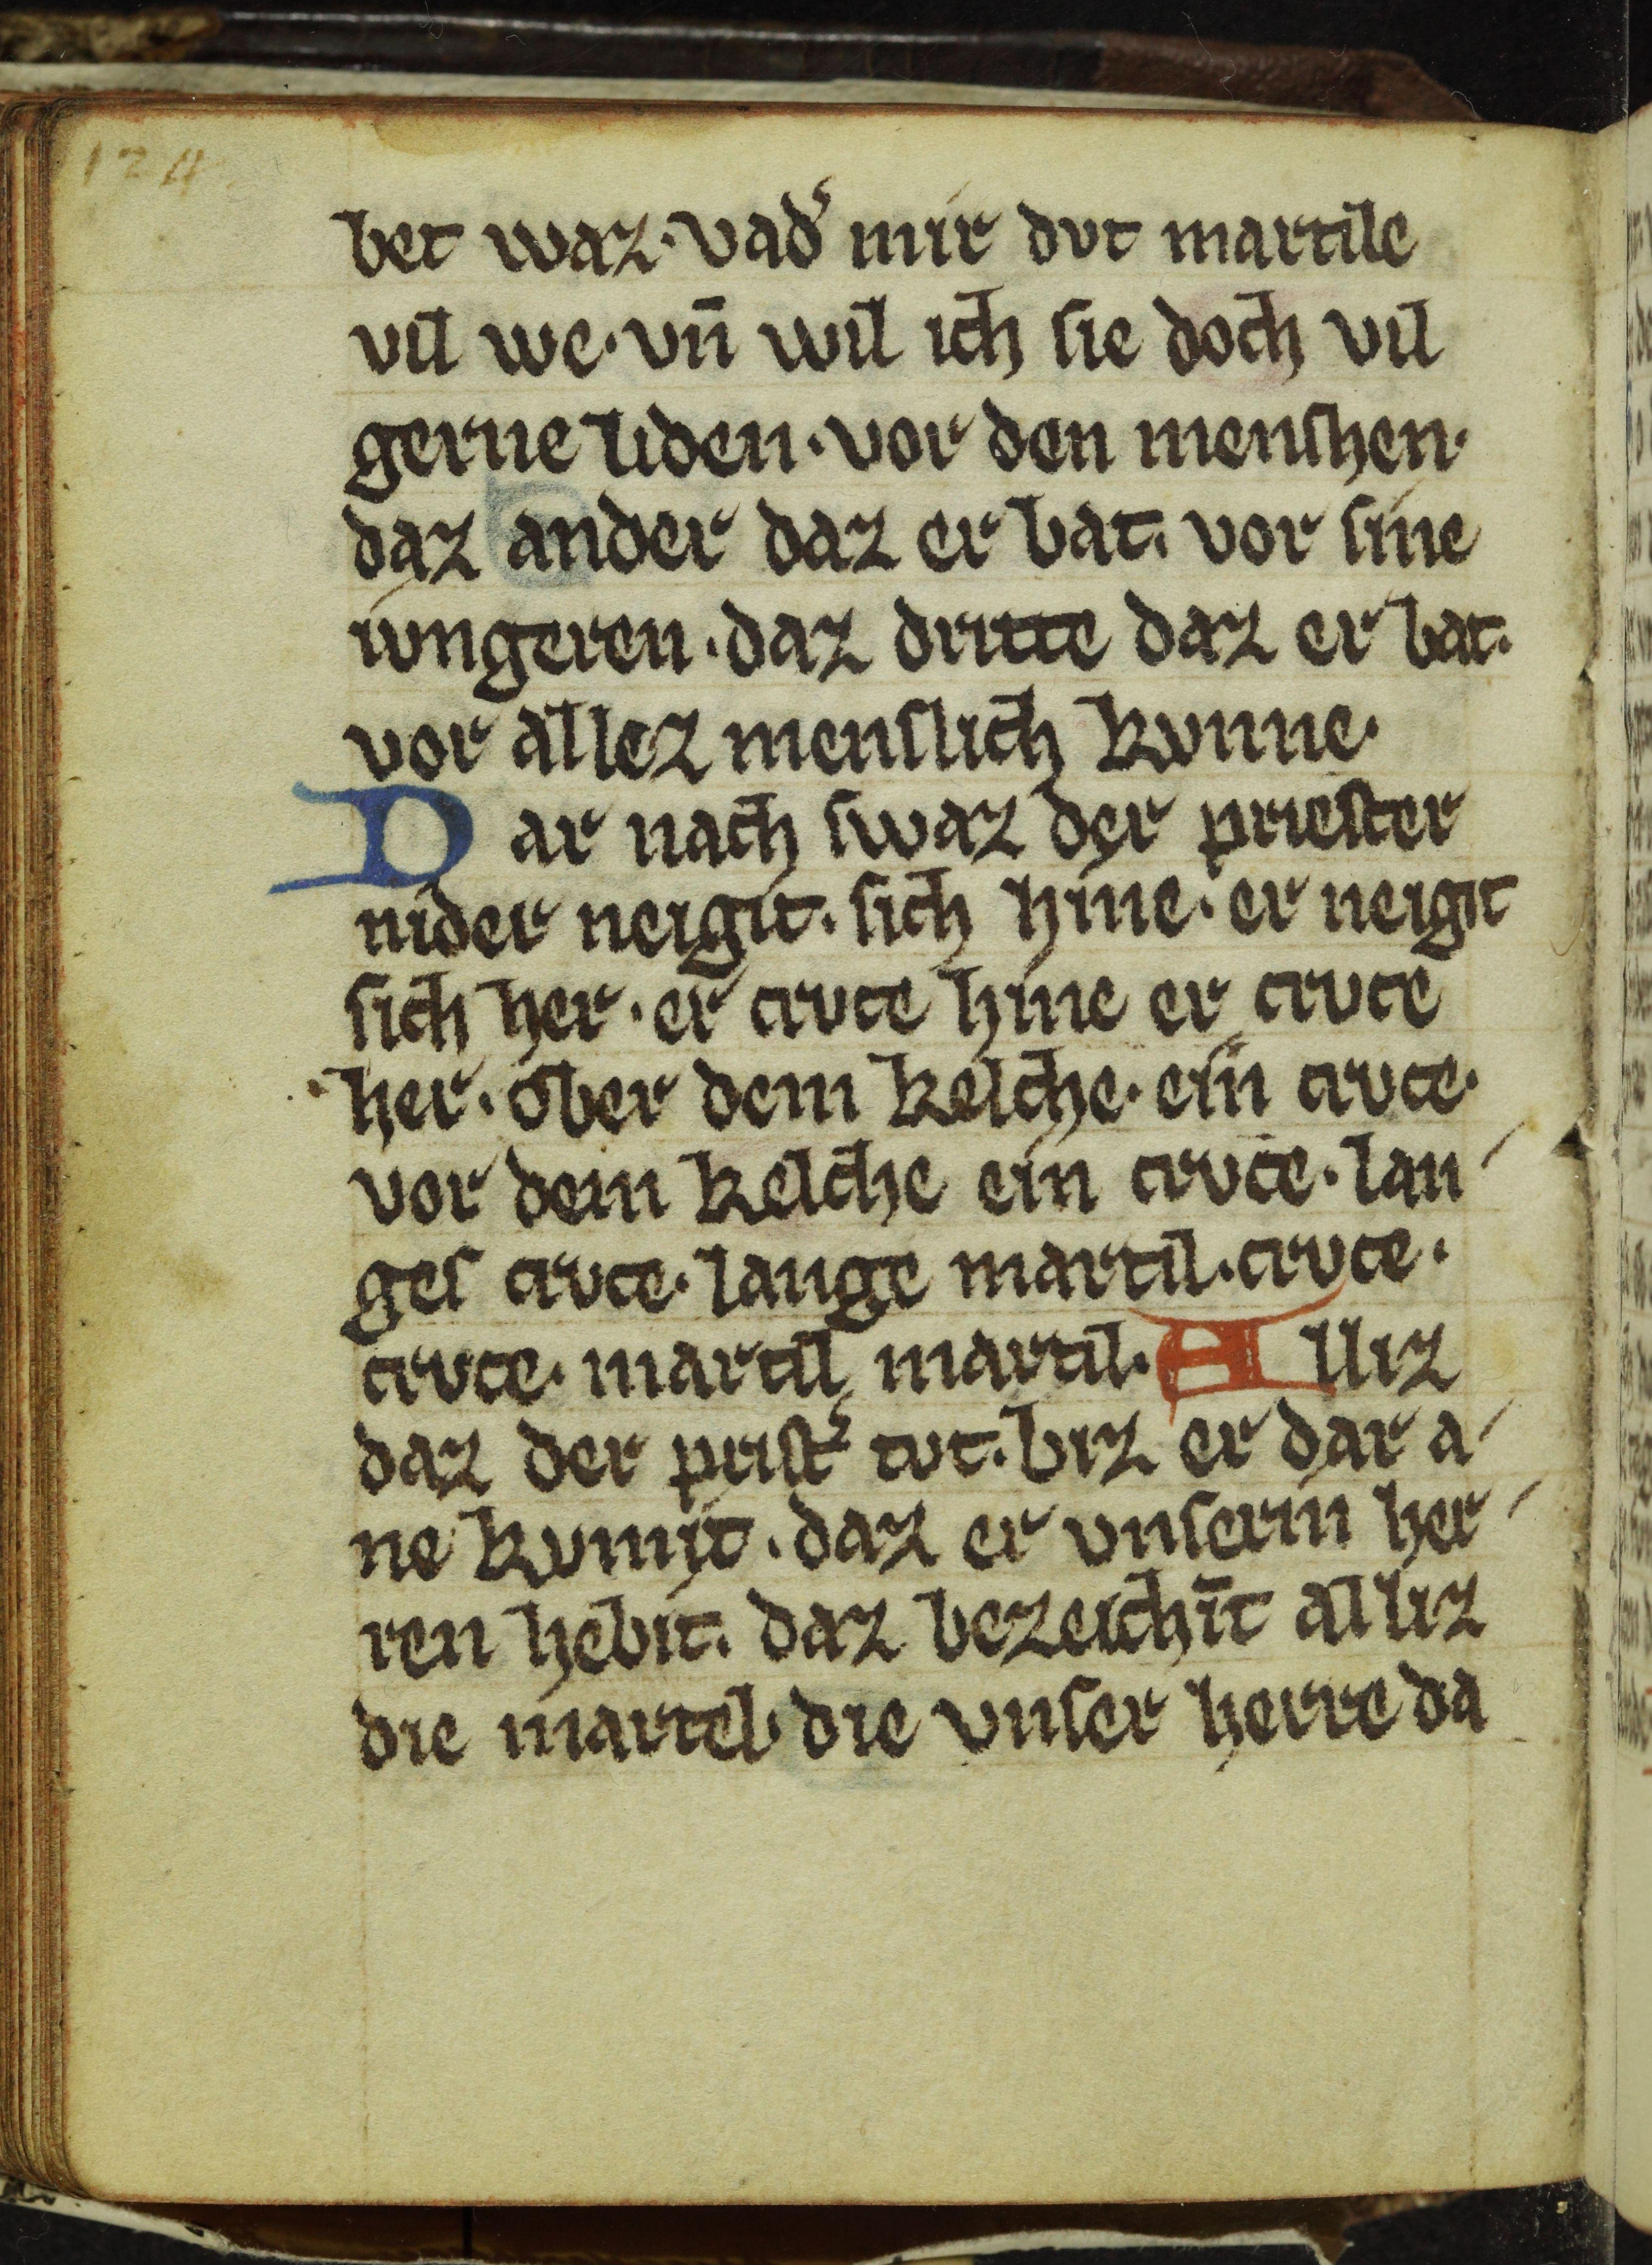 124
bet waz·vad᾽ mir dvt martile
vil we·vn̄ wil ich sie doch vil
gerne liden·vor den menshen·
daz ander daz er bat. vor sine
ivngeren·daz dritte daz er bat.
vor allez menslich kvnne·
Dar nach swaz der priester
nider neigit. sich hine·er neigit
sich her·er crvce hine er crvce
her·ober dem kelche·ein crvce·
vor dem kelche ein crvce·lan
ges crvce·lange martil·crvce·
crvce·martil martil·Alliz
daz der prist᾽ tvt·biz er dar a
ne kvmit·daz er vnserm her
ren hebit. daz bezeichīt alliz
die martel·die vnser herre da